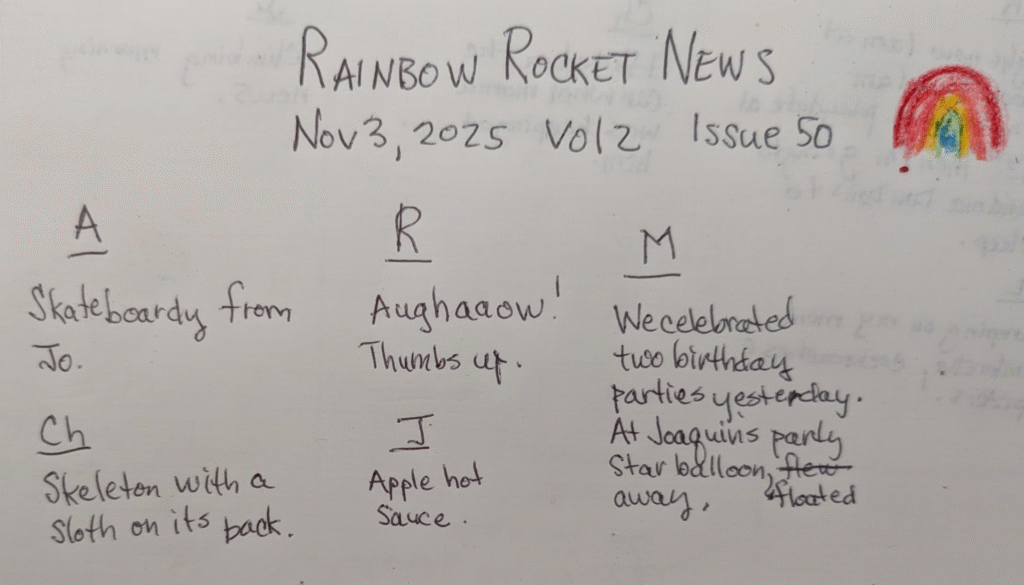 RAINBOW ROCKET NEWS
Nov 3, 2025 Vol 2 Issue 50
A
Skateboardy from
Jo.
Ch
Skeleton with a
sloth on its back.
R
Aughaaow!
Thumbs up.
J
Apple hot
sauce.
M
We celebrated
two birthday
parties yesterday.
At Joaquins party
Star balloon, flew
away, floated